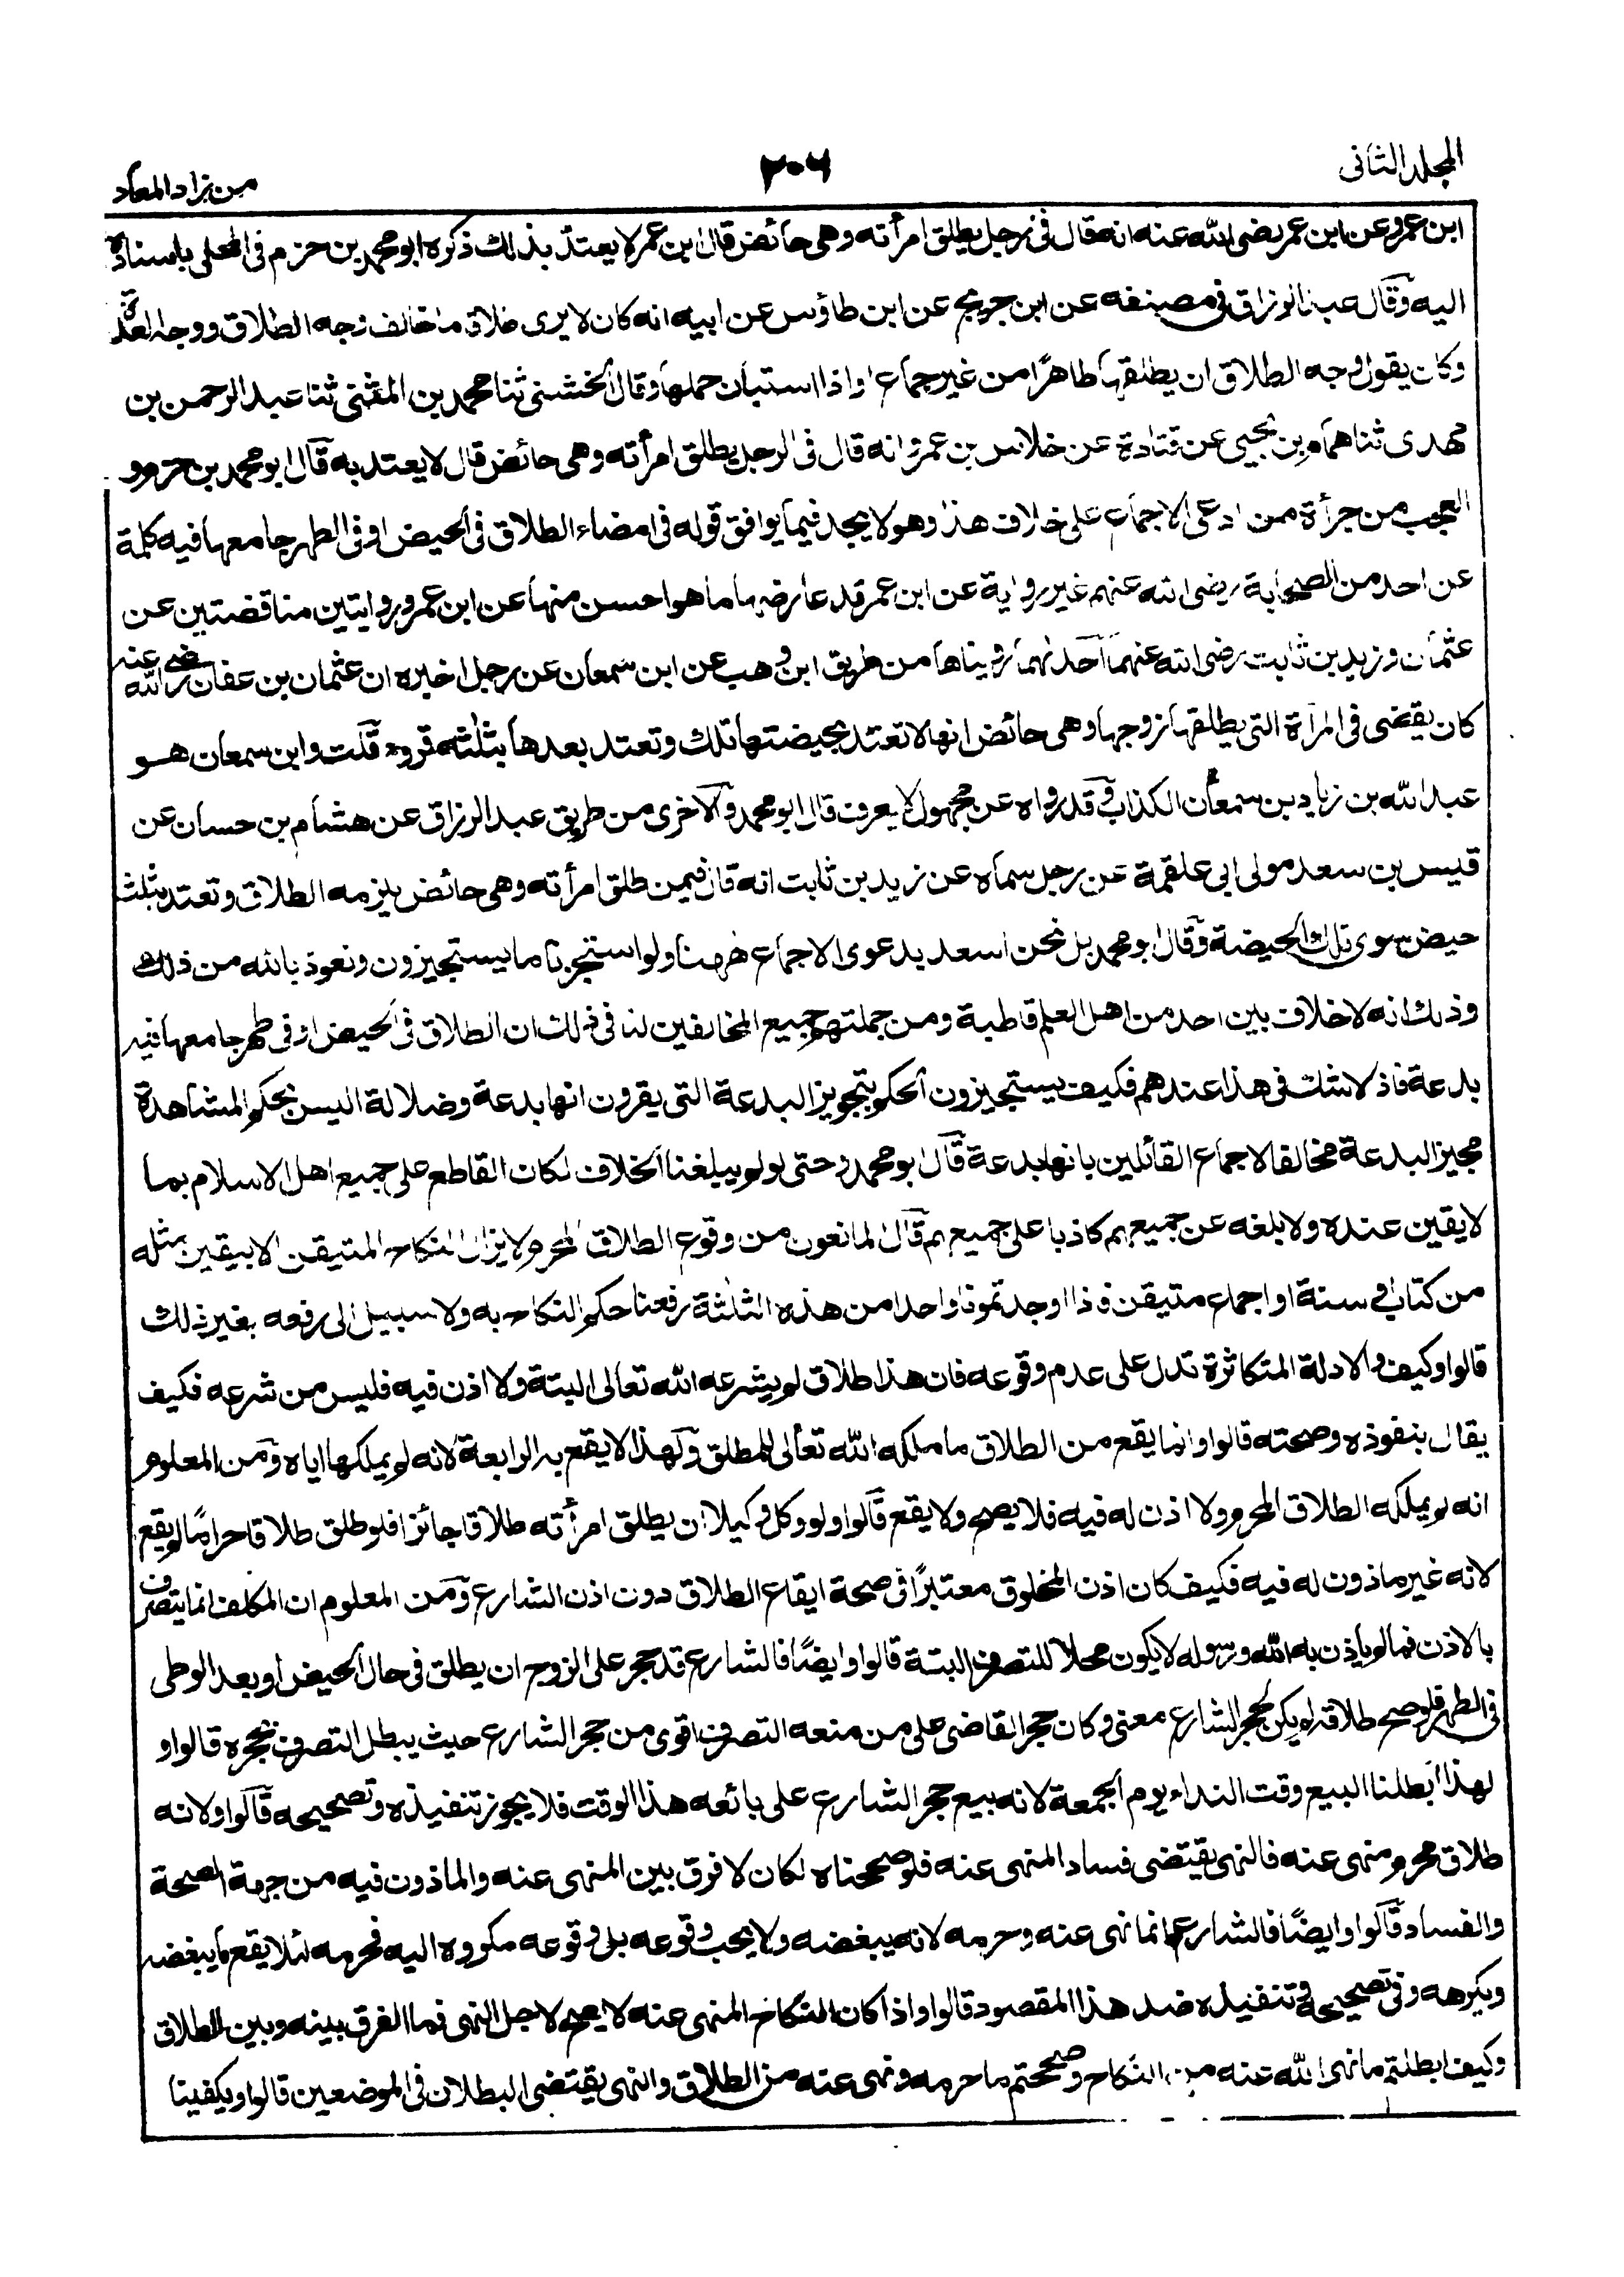 المجلد الثانى
٢٠٦
من زاد المعاد
ابن عمر وعن ابن عمر رضى الله عنه انه قال فى رجل يطلق امرأته وهى حائض قال ابن عمر لا يعتد بذلك ذكره ابو محمد بن حزم فى المحلى باسناده
اليه وقال عبد الرزاق فى مصنفه عن ابن جريج عن ابن طاؤس عن ابيه انه كان لا يرى طلاقا ما خالف وجه الطلاق ووجه العدة
وكان يقول وجه الطلاق ان يطلقها طاهرًا من غير جماع واذا استبان حملها وقال الخشنى ثنا محمد بن المثنى ثنا عبد الرحمن بن
مهدى ثنا همام بن يحيى عن قتادة عن خلاس بن عمرو انه قال فى الرجل يطلق امرأته وهى حائض قال لا يعتد به قال ابو محمد بن حزم و
العجب من جرأة من ادعى الاجماع على خلاف هذا وهو لا يجد فيما يوافق قوله فى امضاء الطلاق فى الحيض او فى الطهر جامعها فيه كلمة
عن احد من الصحابة رضى الله عنهم غير رواية عن ابن عمر قد عارضها ما هو احسن منها عن ابن عمر وروايتين مناقضتين عن
عثمان وزيد بن ثابت رضى الله عنهما احدلهما رويناها من طريق ابن وهب عن ابن سمعان عن رجل اخبره ان عثمان بن عفان رضى الله عنه
كان يقضى فى المرأة التى يطلقها زوجها وهى حائض انها لا تعتد بحيضتها تلك وتعتد بعدها بثلثة قروء قلت وابن سمعان هو
عبد الله بن زياد بن سمعان الكذاب وقد رواه عن مجهول لا يعرف قال ابو محمد والاخرى من طريق عبد الرزاق عن هشام بن حسان عن
قيس بن سعد مولى ابى علقمة عن رجل سماه عن زيد بن ثابت انه قال فيمن طلق امرأته وهى حائض يلزمه الطلاق وتعتد بثلث
حيض سوى تلك الحيضة وقال ابو محمد بل نحن اسعد بدعوى الاجماع ههنا ولو استنجزنا ما يستجيزون ونعوذ بالله من ذلك
وذلك انه لا خلاف بين احد من اهل العلم قاطبة ومن جملتهم جميع المخالفين لنا فى ذلك ان الطلاق فى الحيض او فى طهر جامعها فيه
بدعة فاذ لا شك فى هذا عندهم فكيف يستجيزون الحكم بتجويز البدعة التى يقرون انها بدعة وضلالة اليس بحكم المشاهدة
مجيز البدعة مخالفا لاجماع القائلين بانها بدعة قال ابو محمد وحتى لو لم يبلغنا الخلاف لكان القاطع على جميع اهل الاسلام بما
لا يقين عنده ولا بلغه عن جميعهم كاذبا على جميعهم قال المانعون من وقوع الطلاق المحرم لا يزال النكاح المتيقن الا بيقين مثله
من كتاب او سنة او اجماع متيقن فاذا اوجدتمونا واحدا من هذه الثلثة رفعنا حكم النكاح به ولا سبيل الى رفعه بغير ذلك
قالوا وكيف والادلة المتكاثرة تدل على عدم وقوعه فان هذا طلاق لم يشرعه الله تعالى البتة ولا اذن فيه فليس من شرعه فكيف
يقال بنفوذه وصحته قالوا وانما يقع من الطلاق ما ملكه الله تعالى للمطلق ولهذا لا يقع به الرابعة لانه لم يملكها اياه ومن المعلوم
انه لم يملكه الطلاق المحرم ولا اذن له فيه فلا يصح ولا يقع قالوا ولو وكل وكيلا ان يطلق امرأته طلاقا جائزا فلو طلق طلاقا حراما لم يقع
لانه غير ماذون له فيه فكيف كان اذن المخلوق معتبرًا فى صحة ايقاع الطلاق دون اذن الشارع ومن المعلوم ان المكلف انما يتصرف
بالاذن فما لم ياذن به الله ورسوله لا يكون محلا للتصرف البتة قالوا وايضًا فالشارع قد حجر على الزوج ان يطلق فى حال الحيض او بعد الوطى
فى الطهر فلو صح طلاقه لم يكن لحجر الشارع معنى وكان حجر القاضى على من منعه التصرف اقوى من حجر الشارع حيث يبطل التصرف بحجره قالوا و
لهذا ابطلنا البيع وقت النداء يوم الجمعة لانه بيع حجر الشارع على بائعه هذا الوقت فلا يجوز تنفيذه وتصحيحه قالوا ولانه
طلاق محرم منهى عنه فالنهى يقتضى فساد المنهى عنه فلو صححناه لكان لا فرق بين المنهى عنه والماذون فيه من جهة الصحة
والفساد قالوا وايضًا فالشارع انما نهى عنه وحرمه لانه يبغضه ولا يحب وقوعه بل وقوعه مكروه اليه فحرمه لئلا يقع ما يبغضه
ويكرهه وفى تصحيحه وتنفيذه ضد هذا المقصود قالوا واذا كان النكاح المنهى عنه لا يصح لاجل النهى فما الفرق بينه وبين الطلاق
وكيف ابطلتم ما نهى الله عنه من النكاح وصححتم ما حرمه ونهى عنه من الطلاق والنهى يقتضى البطلان فى الموضعين قالوا ويكفينا